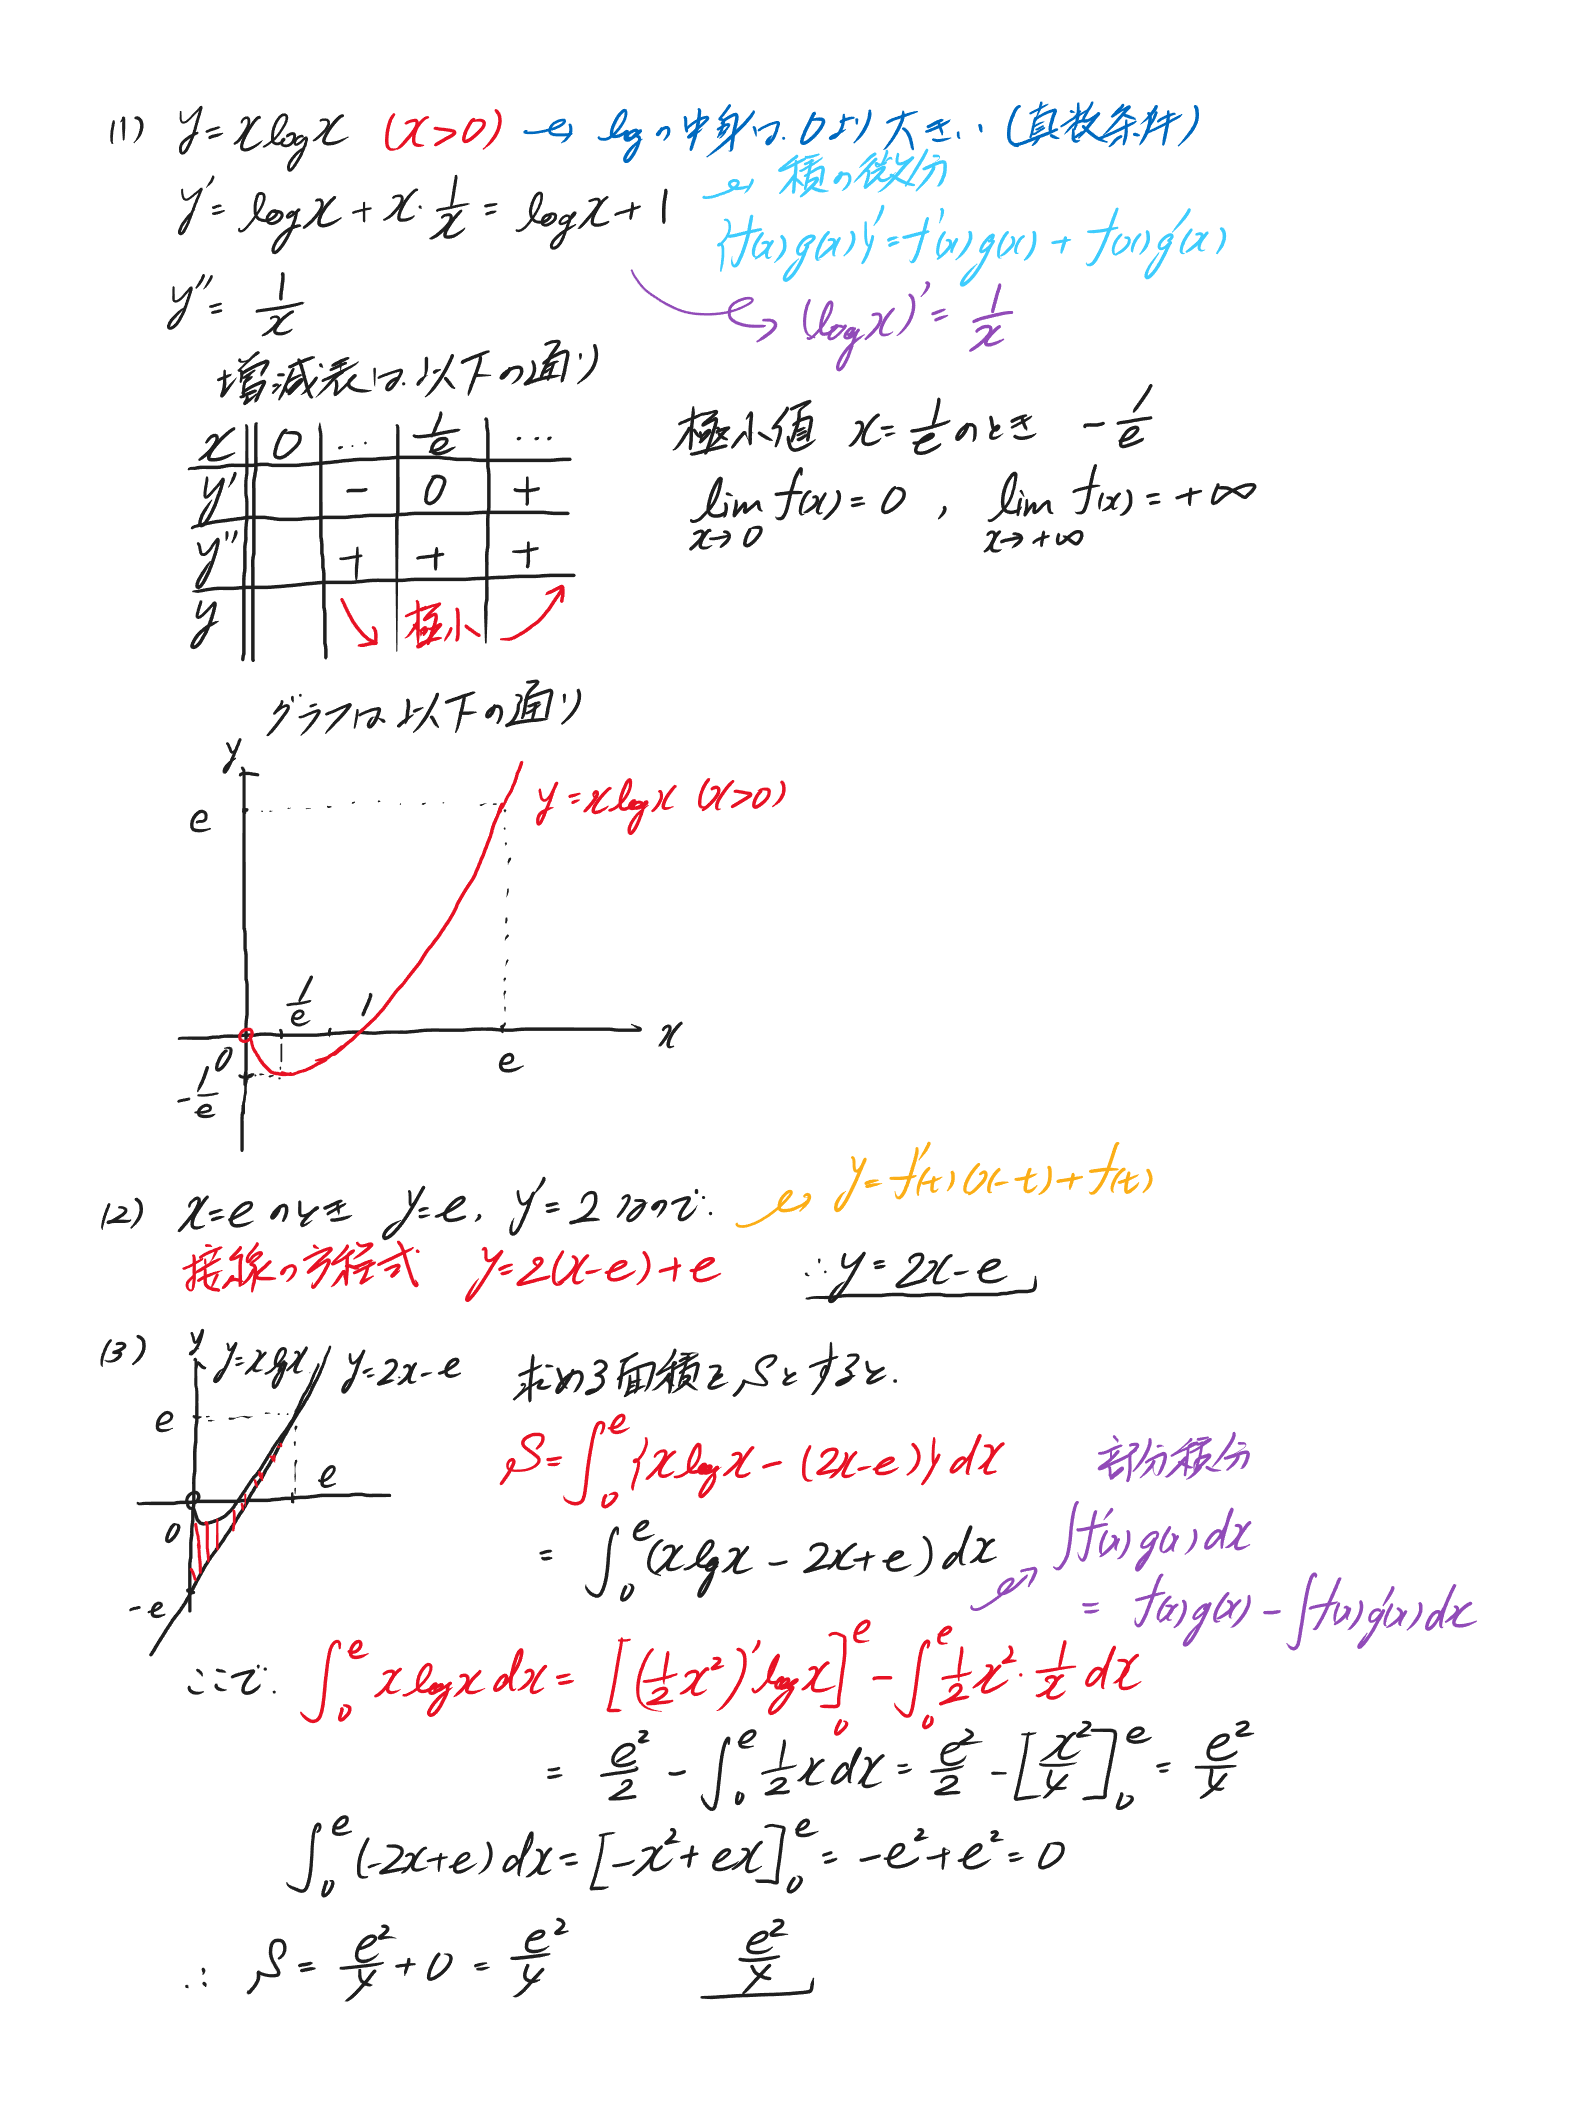 (1) y = x log x (x>0) → logの中身は、0より大きい (真数条件)
y' = log x + x・1/x = log x + 1 → 積の微分
{f(x)g(x)}' = f'(x)g(x) + f(x)g'(x)
y'' = 1/x → (log x)' = 1/x
増減表は、以下の通り
x 0 … 1/e …
y' - 0 +
y'' + + +
y ↘ 極小 ↗
極小値 x = 1/e のとき -1/e
lim x→0 f(x) = 0 , lim x→+∞ f(x) = +∞
グラフは、以下の通り
y
e
y = x log x (x>0)
1/e 1
0 e x
-1/e
(2) x=e のとき y=e, y'=2 なので、 → y = f'(t)(x-t)+f(t)
接線の方程式 y=2(x-e)+e ∴ y = 2x-e
(3) y y=x log x y=2x-e 求める面積をSとすると、
e
e
0
-e
S = ∫₀^e {x log x - (2x-e)} dx
= ∫₀^e (x log x - 2x + e) dx
部分積分
∫f'(x)g(x)dx
= f(x)g(x) - ∫f(x)g'(x)dx
ここで、∫₀^e x log x dx = [(1/2 x²)' log x]₀^e - ∫₀^e 1/2 x²・1/x dx
= e²/2 - ∫₀^e 1/2 x dx = e²/2 - [x²/4]₀^e = e²/4
∫₀^e (-2x+e) dx = [-x²+ex]₀^e = -e²+e² = 0
∴ S = e²/4 + 0 = e²/4 e²/4